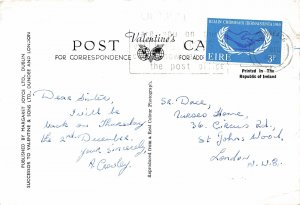 Valentine's
POST CA
FOR CORRESPONDENCE
FOR ADD
the post office
BLIAIN CHOMHAIR IDIRNÁISIÚNTA 1965
ÉIRE 3p
Printed in the
Republic of Ireland
PUBLISHED BY MARGARET JOYCE LTD., DUBLIN
SUCCESSOR TO VALENTINE & SONS LTD., DUNDEE AND LONDON
Reproduced from a Real Colour Photograph.
Dear Sister,
I will be
back on Thursday
the 2nd December
yours sincerely
A. Crowley.
Sr.
Nurses Home,
36, Circus Rd,
St Johns Wood,
London,
N.W.8.